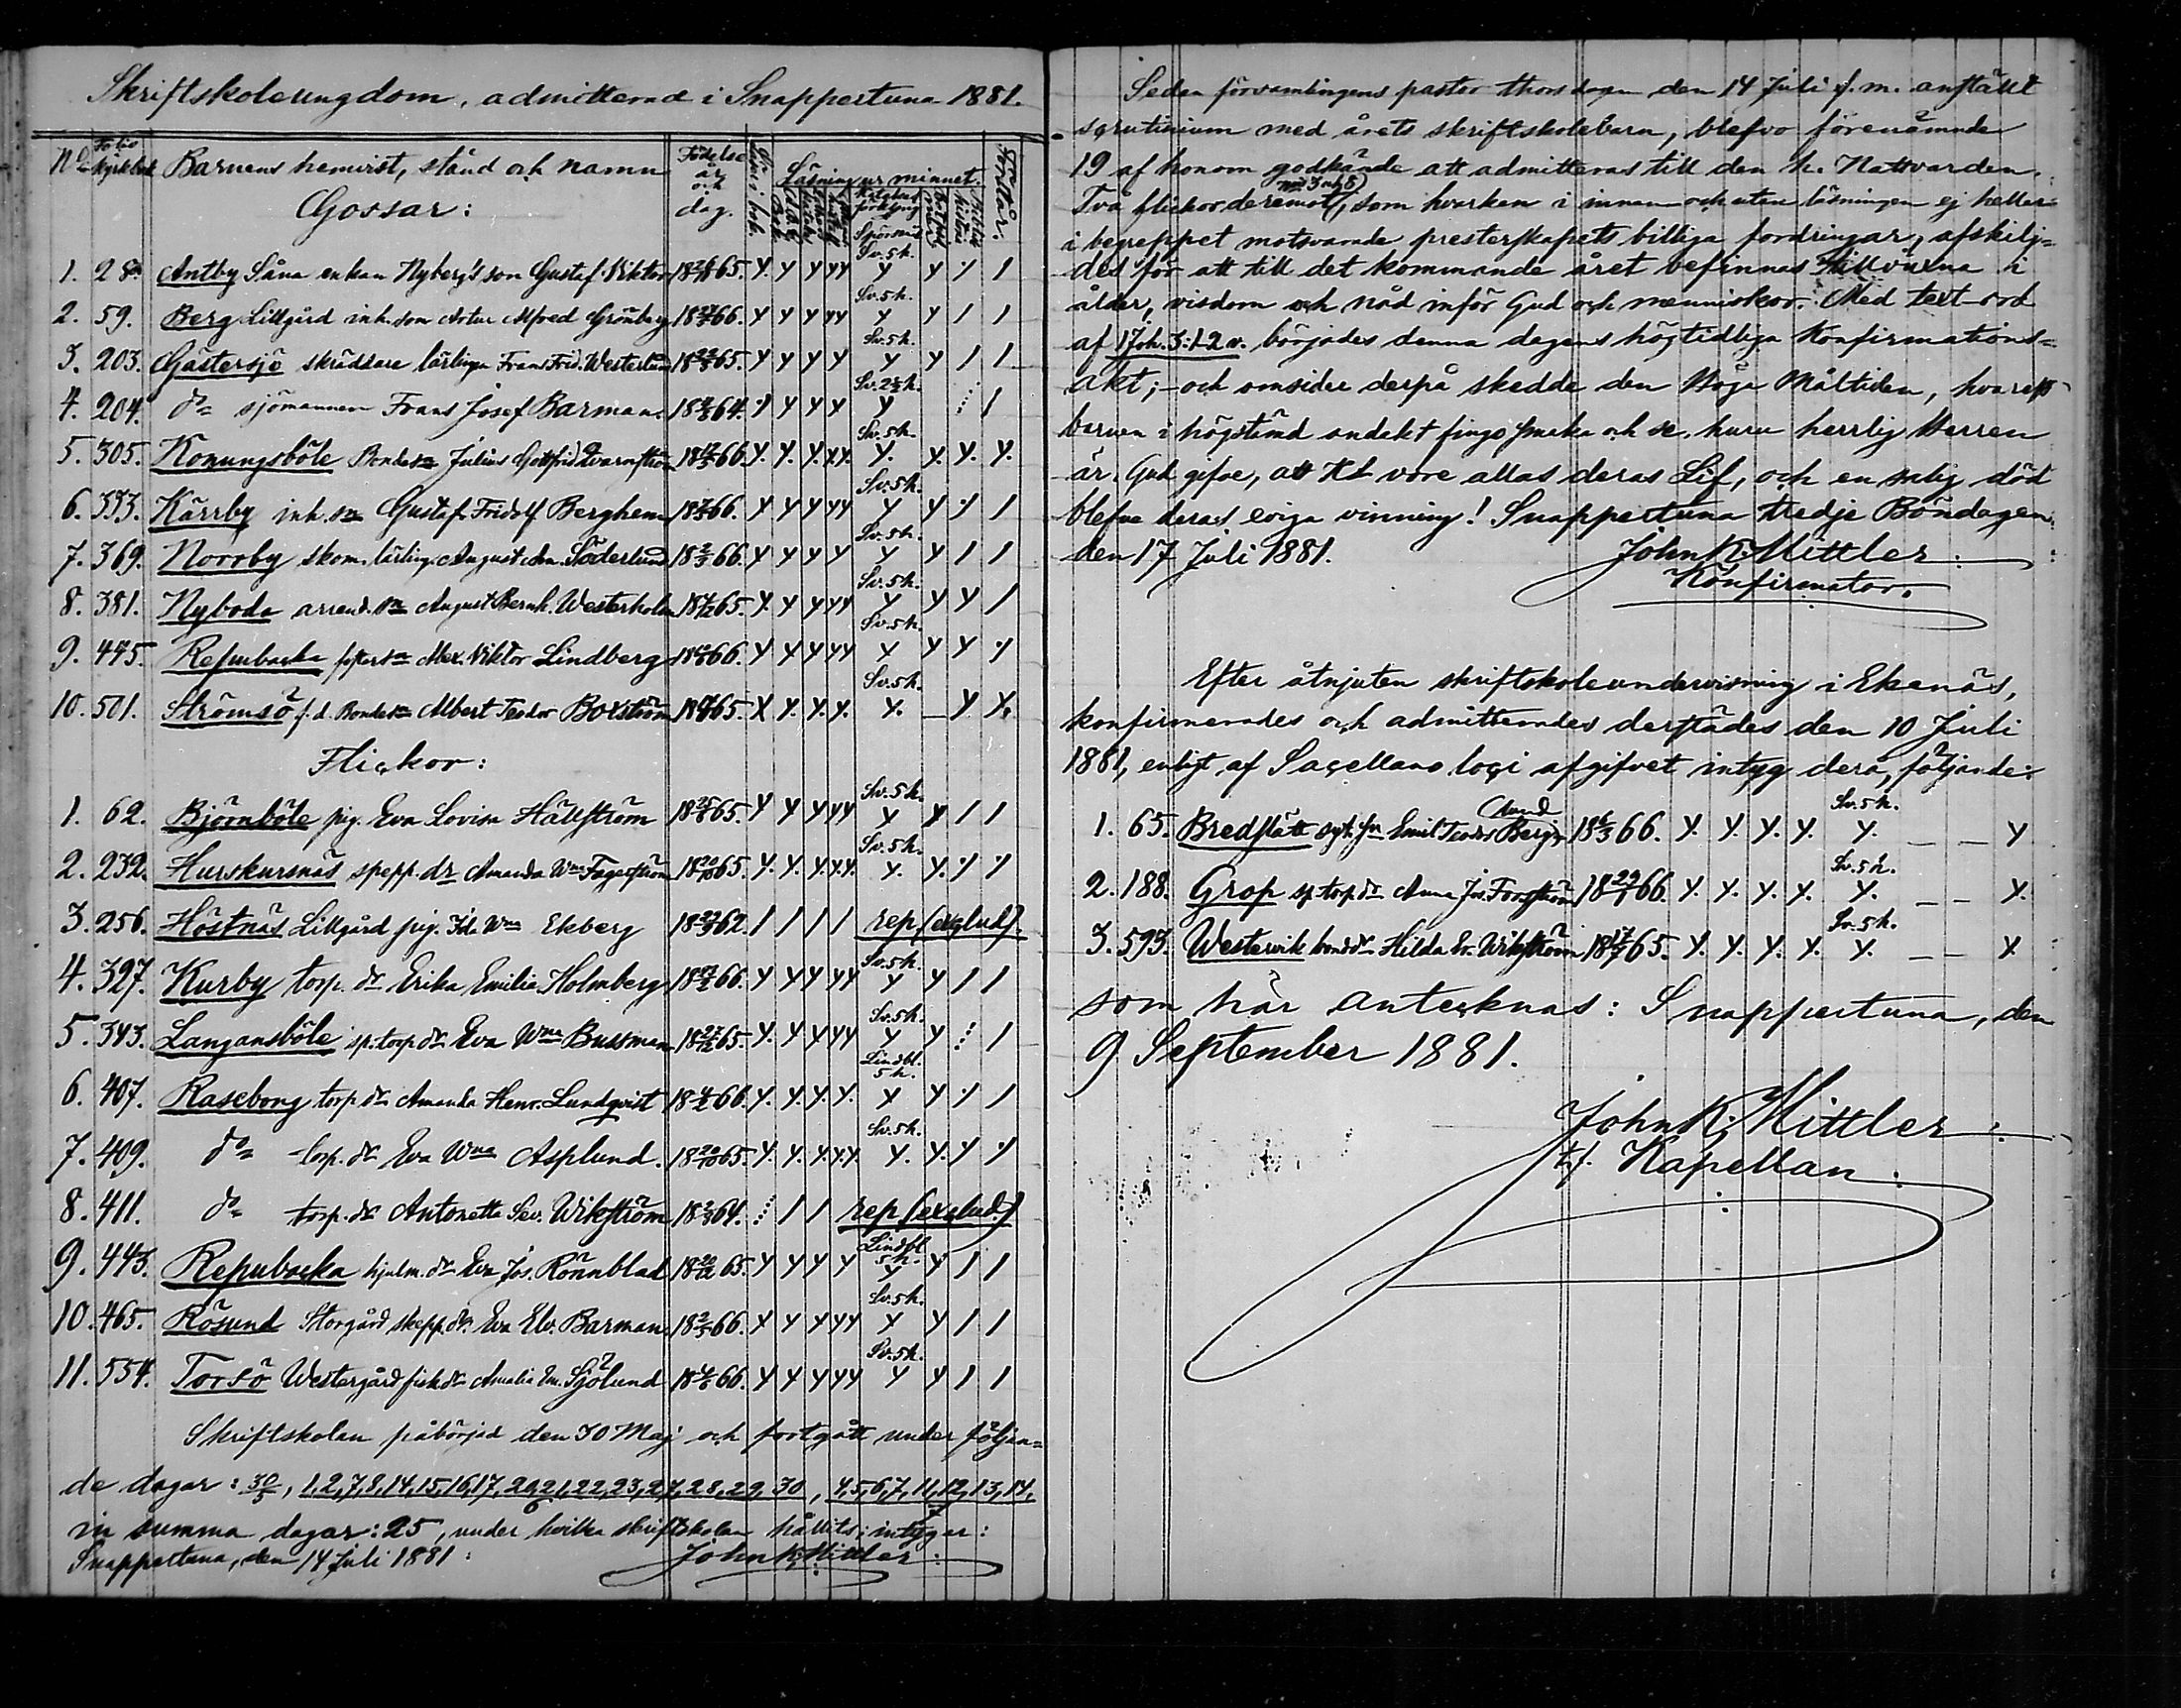 Skriftskoleungdom, admitterad i Snappertuna 1881.
No Folio kyrkbok Barnens hemvist, stånd och namn Födelse år och dag. Läsning ur minnet.
Gossar: Spörsmål
Sv. 5 h.
1. 28. Antby Såna enkan Nyberg's son Gustaf Viktor 1865. y. y y y y y y y /
Sv. 5 h.
2. 59. Berg Lillgård inh. son Artur Alfred Grönberg 1866. y y y y y y y / /
Sv. 5 h.
3. 203. Gästersjö skräddare lärlingen Frans Frid. Westerlund 1865. y y y y y y y / /
Sv. 2½ h.
4. 204. do sjömannen Frans Josef Barman. 1864. y y y y y /
Sv. 5 h.
5. 305. Konungsböle Bondeson Julius Gottfrid Qvarnström 1866. y. y. y. y. y. y. y. y. y.
Sv. 5 h.
6. 333. Kärrby inh. son Gustaf Fridolf Berghem 1866. y y y y y y y y /
Sv. 5 h.
7. 369. Norrby skom. lärling. August Söderlund 18 2/3 66. y y y y y y / /
Sv. 5 h.
8. 381. Nyboda arrend. son August Bernh. Westerholm 1865. y. y y y y y y y /
Sv. 5 h.
9. 445. Repubacka foster son Alex. Viktor Lindberg 1866. y y y y y y y y y
Sv. 5 h.
10. 501. Strömsö f. d. Bondeson Albert Teodor Boxström 1865. y y. y. y. y. — y y.
Flickor:
Sv. 5 h.
1. 62. Björnböle pig. Eva Lovisa Hällström 1865. y y y y y y y / /
Sv. 5 h.
2. 232. Hurskursnäs spepp. dr Amanda Wma Fagerström 18 20/10 65. y. y. y. y. y. y. y. y y
3. 256. Höstnäs Lillgård pig. Ida Wma Ekberg 1862. / / / / rep (exclud).
Sv. 5 h.
4. 327. Kurby torp. dr Erika Emilia Holmberg 1866. y y y y y y y / /
Sv. 5 h.
5. 343. Langansböle sp. torp dr Eva Wma Bussman 18 27/12 65. y. y y y y y y /
Lindbl. 5 h.
6. 407. Raseborg torp dr Amanda Henr. Lundqvist 1866. y. y. y. y. y y y /
Sv. 5 h.
7. 409. do torp. dr Eva Wma Asplund. 18 20/10 65. y. y. y. y. y. y. y. y y
8. 411. do torp. dr Antonetta Sev. Wikström 1864. / / rep (exclud.)
Lindbl 5 h.
9. 443. Repubacka hjelm. dr Eva Jos. Rönnblad 1865. y y y y y y / /
Sv. 5 h.
10. 465. Rösund Storgård skepp. dr. Eva Elv. Barman. 1866. y y y y y y y / /
Sv. 5 h.
11. 554. Torsö Westergård fisk dr Amalia Sjölund 1866. y y y y y y y / /
Skriftskolan påbörjad den 30 Maj och fortgått under följan=
de dagar: 30/5, 1,2,7,8,14,15,16,17,20,21,22,23,27,28,29,30/6, 4,5,6,7,11,12,13,14/7,
in summa dagar: 25, under hvilka skriftskolan hållits; intygar:
Snappertuna, den 14 Juli 1881: John K. Mittler:
Sedan församlingens pastor thorsdagen den 14 Juli f. m. anstält
scrutinium med årets skriftskolebarn, blefvo förenämnde
19 af honom godkände att admitteras till den h. Nattvarden.
Två flickor deremot (no 3 och 8), som hvarken i innan- och utan läsningen ej heller
i begreppet motsvarade presterskapets billiga fordringar, afskilj=
des för att till det kommande året befinnas tillvuxna i
ålder, visdom och nåd inför Gud och menniskor. Med text-ord
af 1 Joh. 3: 1-2 v. börjades denna dagens högtidliga Konfirmations=
akt; - och omsider derpå skedde den Höga Måltiden, hvarest
barnen i högstämd andakt fingo smaka och se, huru herrlig Herren
är. Gud gifve, att vore allas deras Lif, och en salig död
blefve deras eviga vinning! Snappertuna tredje Böndagen
den 17 Juli 1881. John K. Mittler:
Konfirmator.
Efter åtnjuten skriftskoleundervisning i Ekenäs,
konfirmerades och admitterades derstädes den 10 Juli
1881, enligt af Sacellano loci afgifvet intyg derå, följande:
Sv. 5 h.
1. 65. Bredslätt Emil Teodor Berg 18 6/3 66. y. y. y. y. y. — — y
Sv. 5 h.
2. 188. Grop sp. torp. dr Anna Jos. Forsström 18 29/1 66. y. y. y. y. y. — — y.
Sv. 5 h.
3. 593. Westervik bond dr Hilda Wikström 1865. y. y. y. y. y. — — y
som här antecknas: Snappertuna, den
9 September 1881.
John K. Mittler:
t.f. Kapellan: